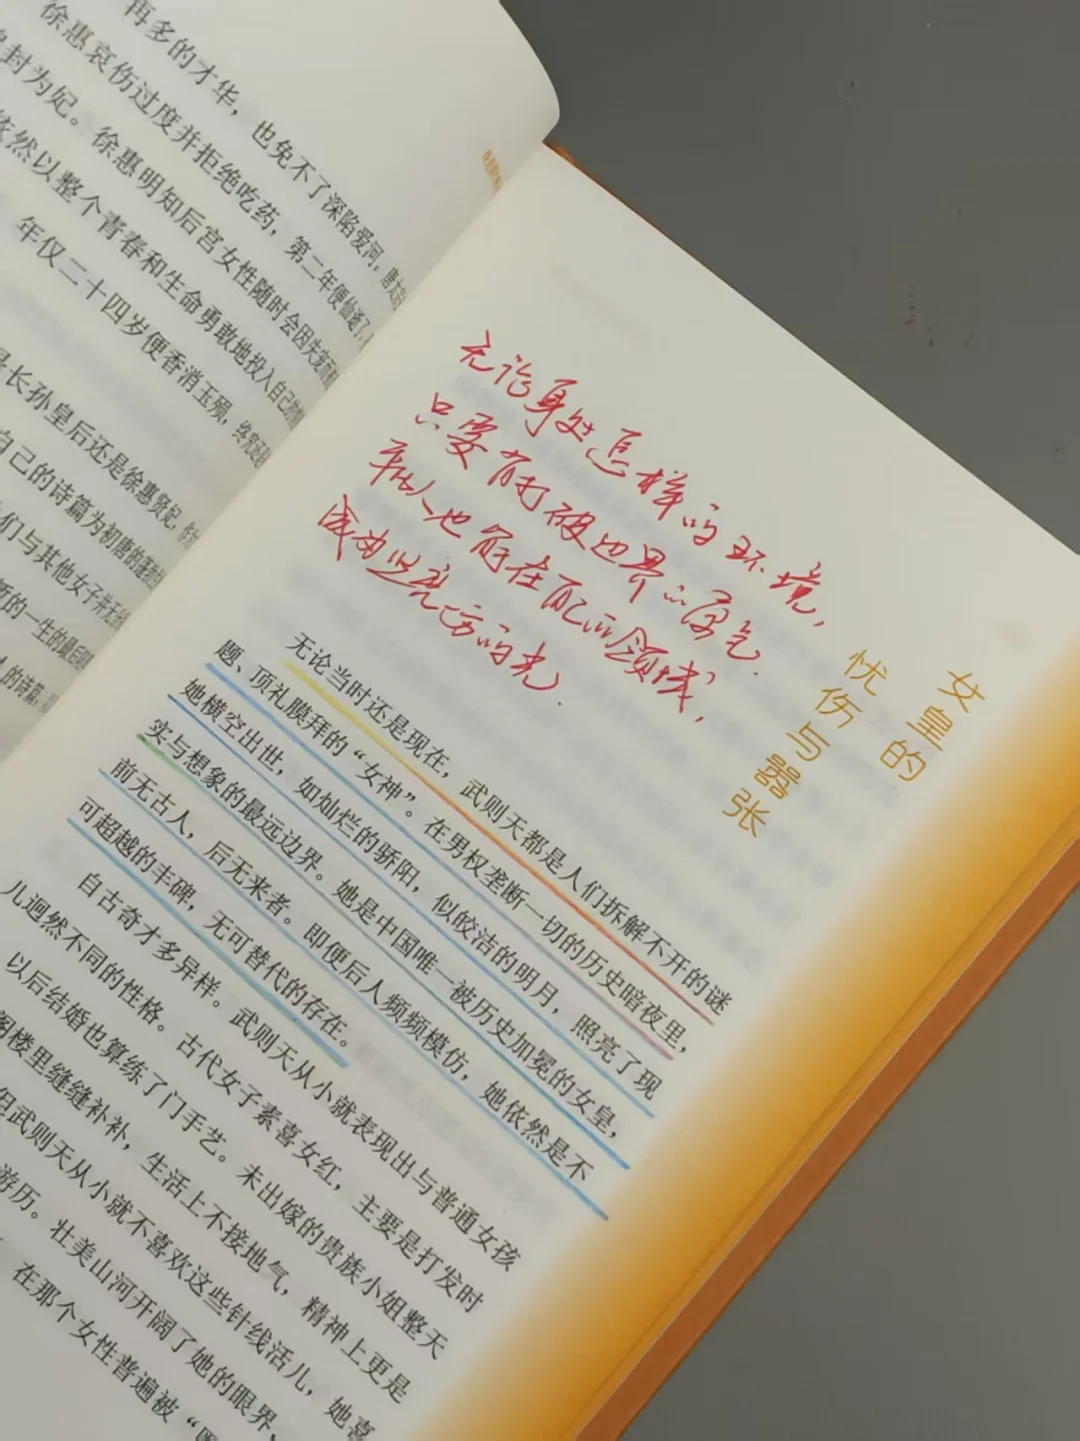 再多的才华，也免不了深陷爱河。唐太宗
徐惠哀伤过度并拒绝吃药，第二年便仙逝了，
封为妃。徐惠明知后宫女性随时会因失宠而
依然以整个青春和生命勇敢地投入自己的
年仅二十四岁便香消玉殒，终究还是
长孙皇后还是徐惠贤妃，作为
自己的诗篇为初唐的
们与其他女子并无
的一生的最后
的诗篇，
无论身处怎样的环境，
只要有打破边界的勇气，
和人也能在自己的领域，
成为照亮一方的光。
女皇的
忧伤与嚣张
无论当时还是现在，武则天都是人们拆解不开的谜
题、顶礼膜拜的“女神”。在男权垄断一切的历史暗夜里，
她横空出世，如灿烂的骄阳，似皎洁的明月，照亮了现
实与想象的最远边界。她是中国唯一被历史加冕的女皇，
前无古人，后无来者。即便后人频频模仿，她依然是不
可超越的丰碑，无可替代的存在。
自古奇才多异样。武则天从小就表现出与普通女孩
儿迥然不同的性格。古代女子素喜女红，主要是打发时
以后结婚也算练了门手艺。未出嫁的贵族小姐整天
阁楼里缝缝补补，生活上不接地气，精神上更是
但武则天从小就不喜欢这些针线活儿，她喜
游历。壮美山河开阔了她的眼界，
在那个女性普遍被“